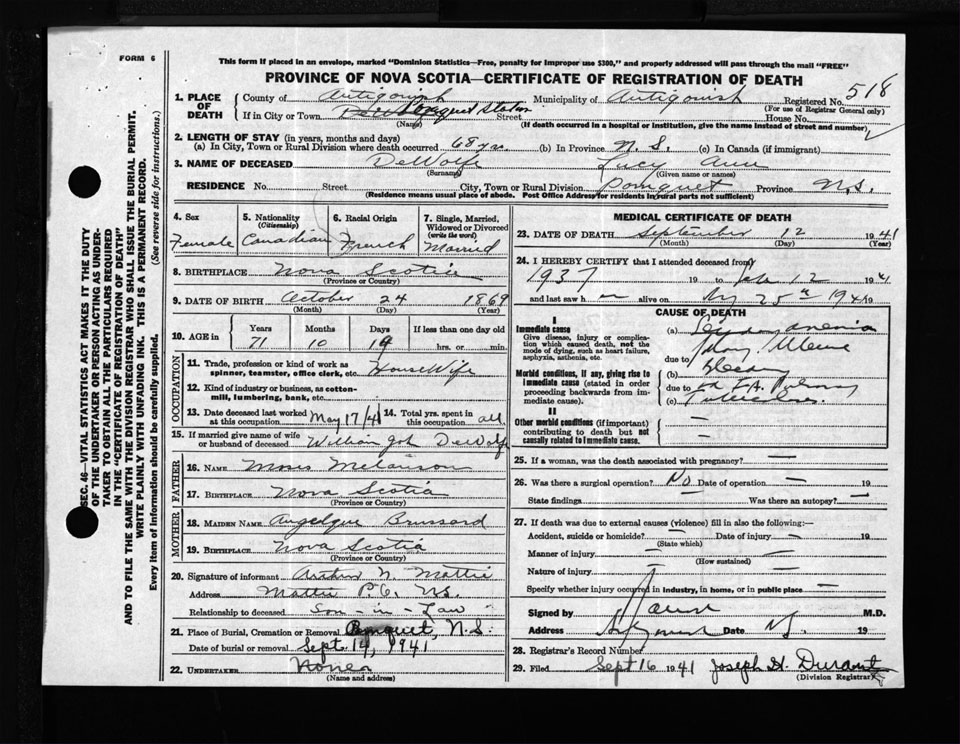 FORM 6
This form if placed in an envelope, marked "Dominion Statistics—Free, penalty for improper use $300," and properly addressed will pass through the mail "FREE"
PROVINCE OF NOVA SCOTIA—CERTIFICATE OF REGISTRATION OF DEATH
518
1. PLACE OF DEATH
County of Antigonish Municipality of Antigonish Registered No.
(For use of Registrar General only)
If in City or Town Pomquet Station Street House No.
(Name) (If death occurred in a hospital or institution, give the name instead of street and number)
2. LENGTH OF STAY (in years, months and days)
(a) In City, Town or Rural Division where death occurred 68 yrs. (b) In Province N. S. (c) In Canada (if immigrant)
3. NAME OF DECEASED DeWolfe Lucy Ann
(Surname) (Given name or names)
RESIDENCE No. Street City, Town or Rural Division Pomquet Province N.S.
(Residence means usual place of abode. Post Office Address for residents in rural parts not sufficient)
4. Sex Female
5. Nationality (Citizenship) Canadian
6. Racial Origin French
7. Single, Married, Widowed or Divorced (write the word) Married
8. BIRTHPLACE Nova Scotia
(Province or Country)
9. DATE OF BIRTH October 24 1869
(Month) (Day) (Year)
10. AGE in Years Months Days If less than one day old
71 10 19 hrs. or min.
OCCUPATION
11. Trade, profession or kind of work as spinner, teamster, office clerk, etc. HouseWife
12. Kind of industry or business, as cotton-mill, lumbering, bank, etc.
13. Date deceased last worked at this occupation May 17/41 14. Total yrs. spent in this occupation all
15. If married give name of wife or husband of deceased William Joh DeWolfe
FATHER
16. NAME Moses Melanson
17. BIRTHPLACE Nova Scotia
(Province or Country)
MOTHER
18. MAIDEN NAME Angelque Brussard
19. BIRTHPLACE Nova Scotia
(Province or Country)
20. Signature of informant Arthur N. Mattie
Address Mattie P.O. N.S.
Relationship to deceased Son-in-Law
21. Place of Burial, Cremation or Removal Pomquet, N.S.
Date of burial or removal Sept. 14, 1941
22. UNDERTAKER
(Name and Address)
MEDICAL CERTIFICATE OF DEATH
23. DATE OF DEATH September 12 1941
(Month) (Day) (Year)
24. I HEREBY CERTIFY that I attended deceased from
1937 19 to 12 1941
and last saw h er alive on 25th 1941 19
CAUSE OF DEATH
I
Immediate cause
Give disease, injury or complication which caused death, not the mode of dying, such as heart failure, asphyxia, asthenia, etc.
(a) anemia
due to
Morbid conditions, if any, giving rise to immediate cause (stated in order proceeding backwards from immediate cause).
(b)
due to
(c)
II
Other morbid conditions (if important) contributing to death but not causally related to immediate cause.
25. If a woman, was the death associated with pregnancy? —
26. Was there a surgical operation? No Date of operation — 19
State findings Was there an autopsy? —
27. If death was due to external causes (violence) fill in also the following:—
Accident, suicide or homicide? — Date of injury — 19
(State which)
Manner of injury —
(How sustained)
Nature of injury —
Specify whether injury occurred in industry, in home, or in public place —
Signed by M.D.
Address Date 19
28. Registrar's Record Number
29. Filed Sept 16 1941 Joseph H. Durant
(Division Registrar)
SEC. 46—VITAL STATISTICS ACT MAKES IT THE DUTY
OF THE UNDERTAKER OR PERSON ACTING AS UNDER-
TAKER TO OBTAIN ALL THE PARTICULARS REQUIRED
IN THE "CERTIFICATE OF REGISTRATION OF DEATH"
AND TO FILE THE SAME WITH THE DIVISION REGISTRAR WHO SHALL ISSUE THE BURIAL PERMIT.
WRITE PLAINLY WITH UNFADING INK. THIS IS A PERMANENT RECORD.
Every item of information should be carefully supplied. (See reverse side for instructions.)